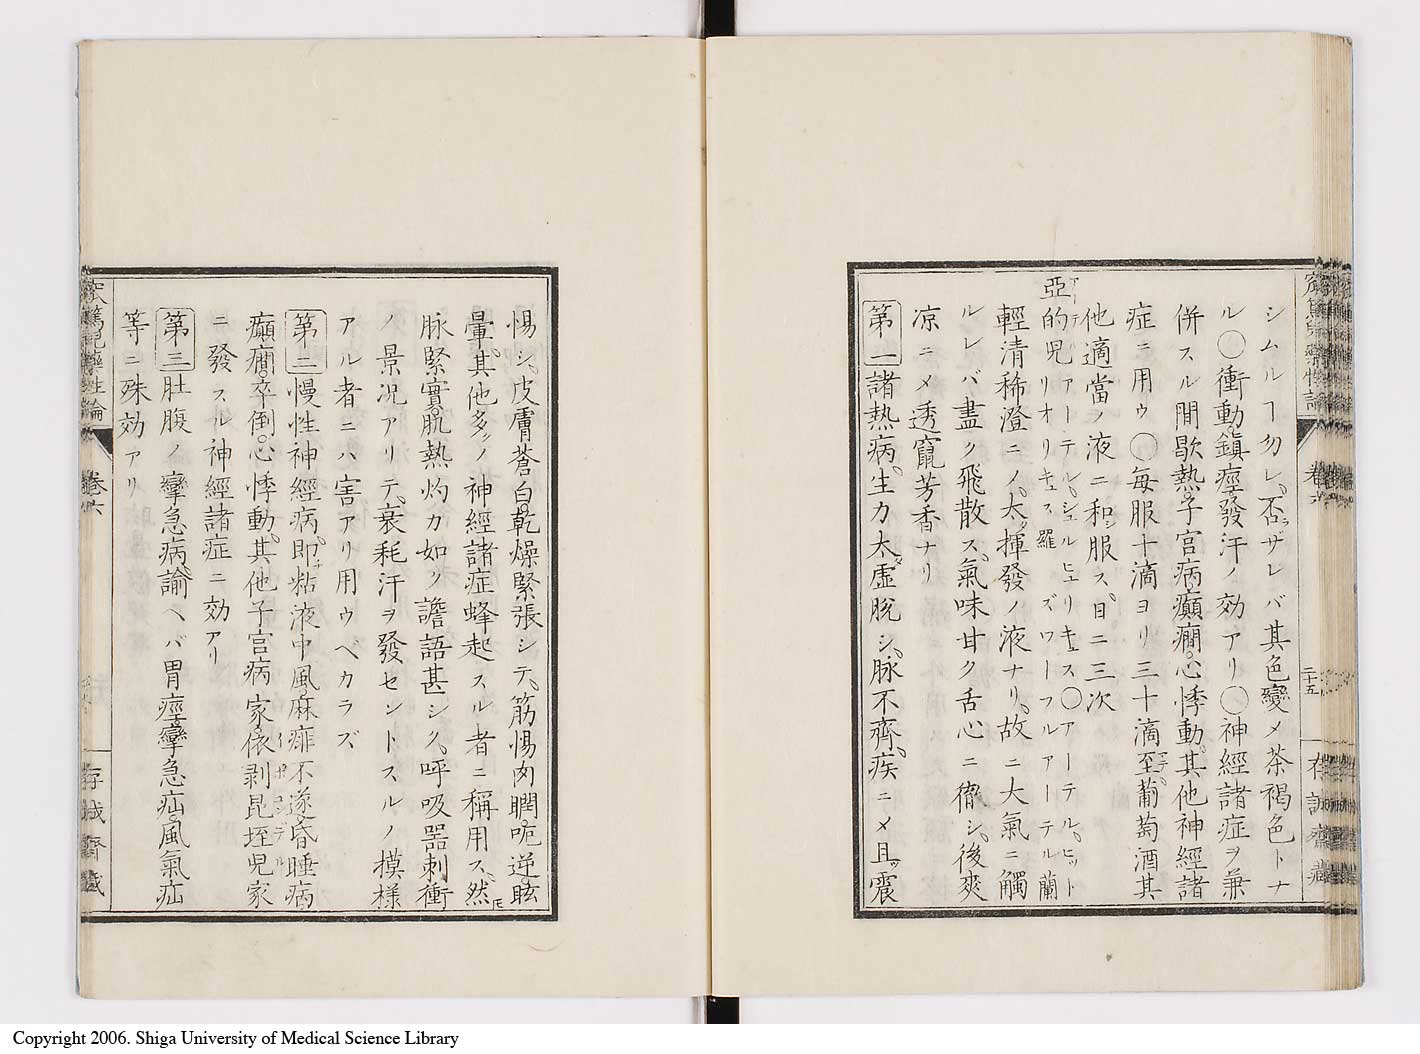 シムルヿ勿レ、否ラザレバ其色變メ茶褐色トナ
ル〇衝動。鎭痙。發汗ノ効アリ〇神經諸症ヲ兼
併スル間歇熱。子宮病。癲癇。心悸動。其他神經諸
症ニ用ウ〇每服十滴ヨリ三十滴至。葡萄酒其
他適當ノ液ニ和シ服ス、日ニ三次
亞的児 アーテル。シュルヒュリキュス〇アーテル。ヒット
リオリキュス 羅 ズワーフルアートテル 蘭
輕清稀澄ニメ、大ニ揮發ノ液ナリ、故ニ大氣ニ觸
ルレバ盡ク飛散ス、氣味甘ク舌心ニ徹シ、後爽
凉ニメ透竄芳香ナリ
第一 諸熱病、生力太虛脫シ、脉不齊、疾ニメ且ツ震
惕シ、皮膚蒼白。乾燥緊張シテ、筋惕肉瞤。呃逆。眩
暈。其他多クノ神經諸症蜂起スル者ニ稱用ス、然
脉緊實。肌熱灼カ如ク譫語甚シク、呼吸器刺衝
ノ景況アリテ、衰耗汗ヲ發セントスルノ摸樣
アル者ニハ害アリ用ウベカラズ
第二 慢性神經病。即粘液中風。麻痱不遂。昏睡病。
癲癇卒倒。心悸動。其他子宮病家。依剥昆垤児家
ニ發スル神經諸症ニ効アリ
第三 肚腹ノ攣急病、諭ヘバ胃痙攣急疝。風氣疝
等ニ殊効アリ
窊篤児藥性論
卷六
二十五
存誠齋藏
Copyright 2006. Shiga University of Medical Science Library